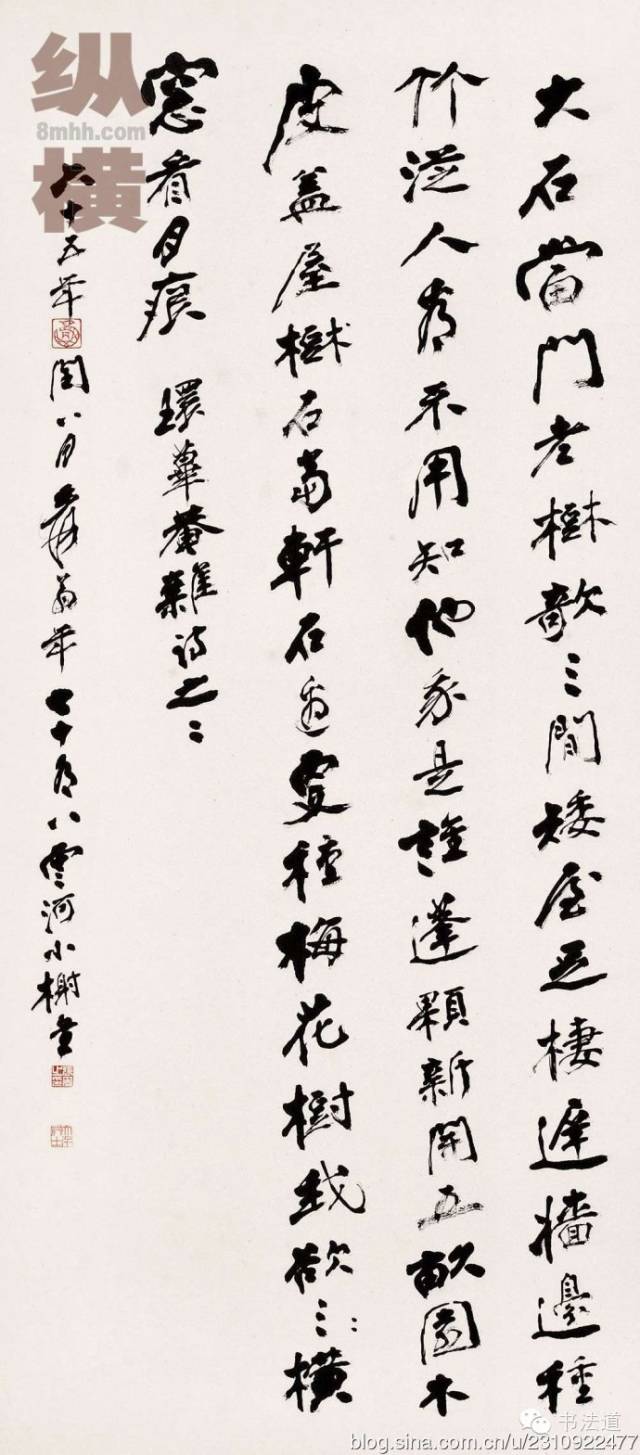 大石當門老樹欹三間矮屋足棲遲牆邊種
竹從人看不用知他我是誰蓬顆新開五畝園木
皮蓋屋樹石當軒石邊更種梅花樹我欲三橫
窗看月痕 環蓽菴雜詩之二
六十五年閏八月爰翁年七十有八河小榭書
纵横
8mhh.com
书法道
blog.sina.com.cn/u/2310922477